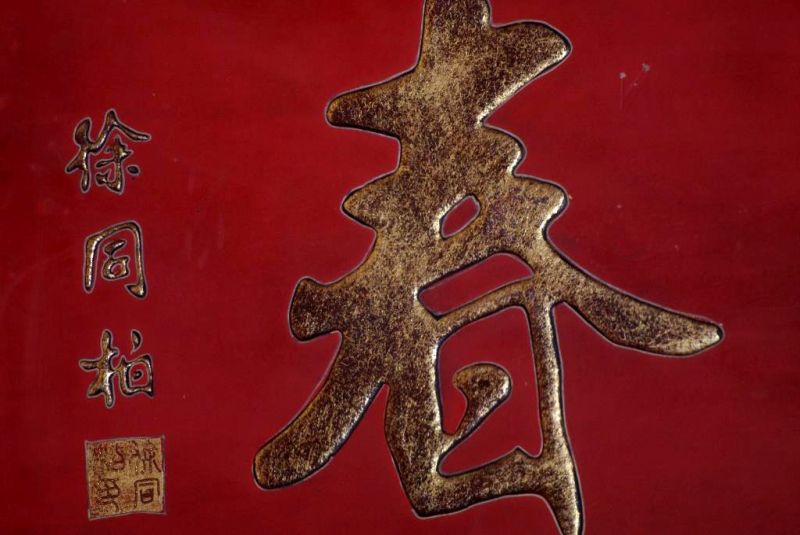 春
徐同柏